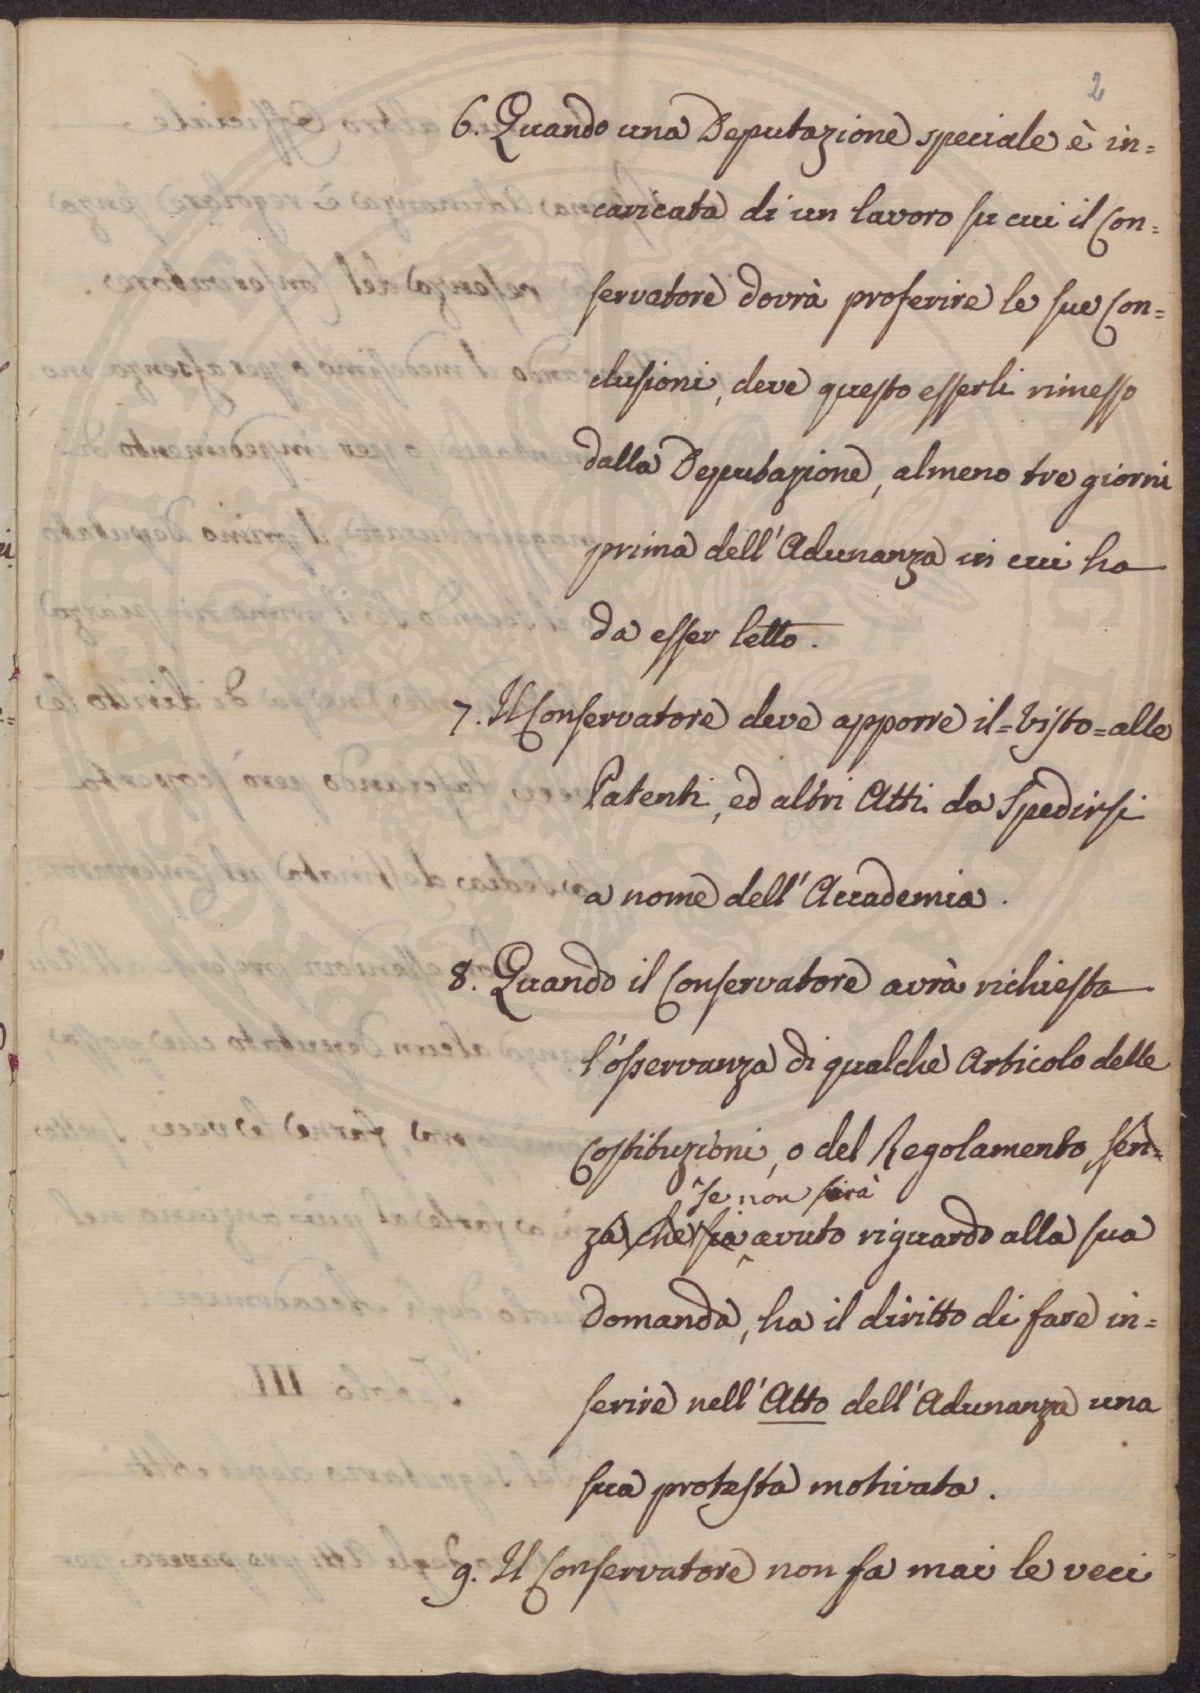 2
6. Quando una Deputazione speciale è in=
caricata di un lavoro su cui il Con=
servatore dovrà proferire le sue Con=
clusioni, deve questo esserli rimesso
dalla Deputazione, almeno tre giorni
prima dell'Adunanza in cui ha
da esser letto.
7. Il Conservatore deve apporre il=Visto=alle
Patenti, ed altri Atti da Spedirsi
a nome dell'Accademia.
8. Quando il Conservatore avrà richiesta
l'osservanza di qualche Articolo delle
Costituzioni, o del Regolamento, sen=
se non sarà
za che sia avuto riguardo alla sua
domanda, ha il diritto di fare in=
serire nell'Atto dell'Adunanza una
sua protesta motivata.
9. Il Conservatore non fa mai le veci